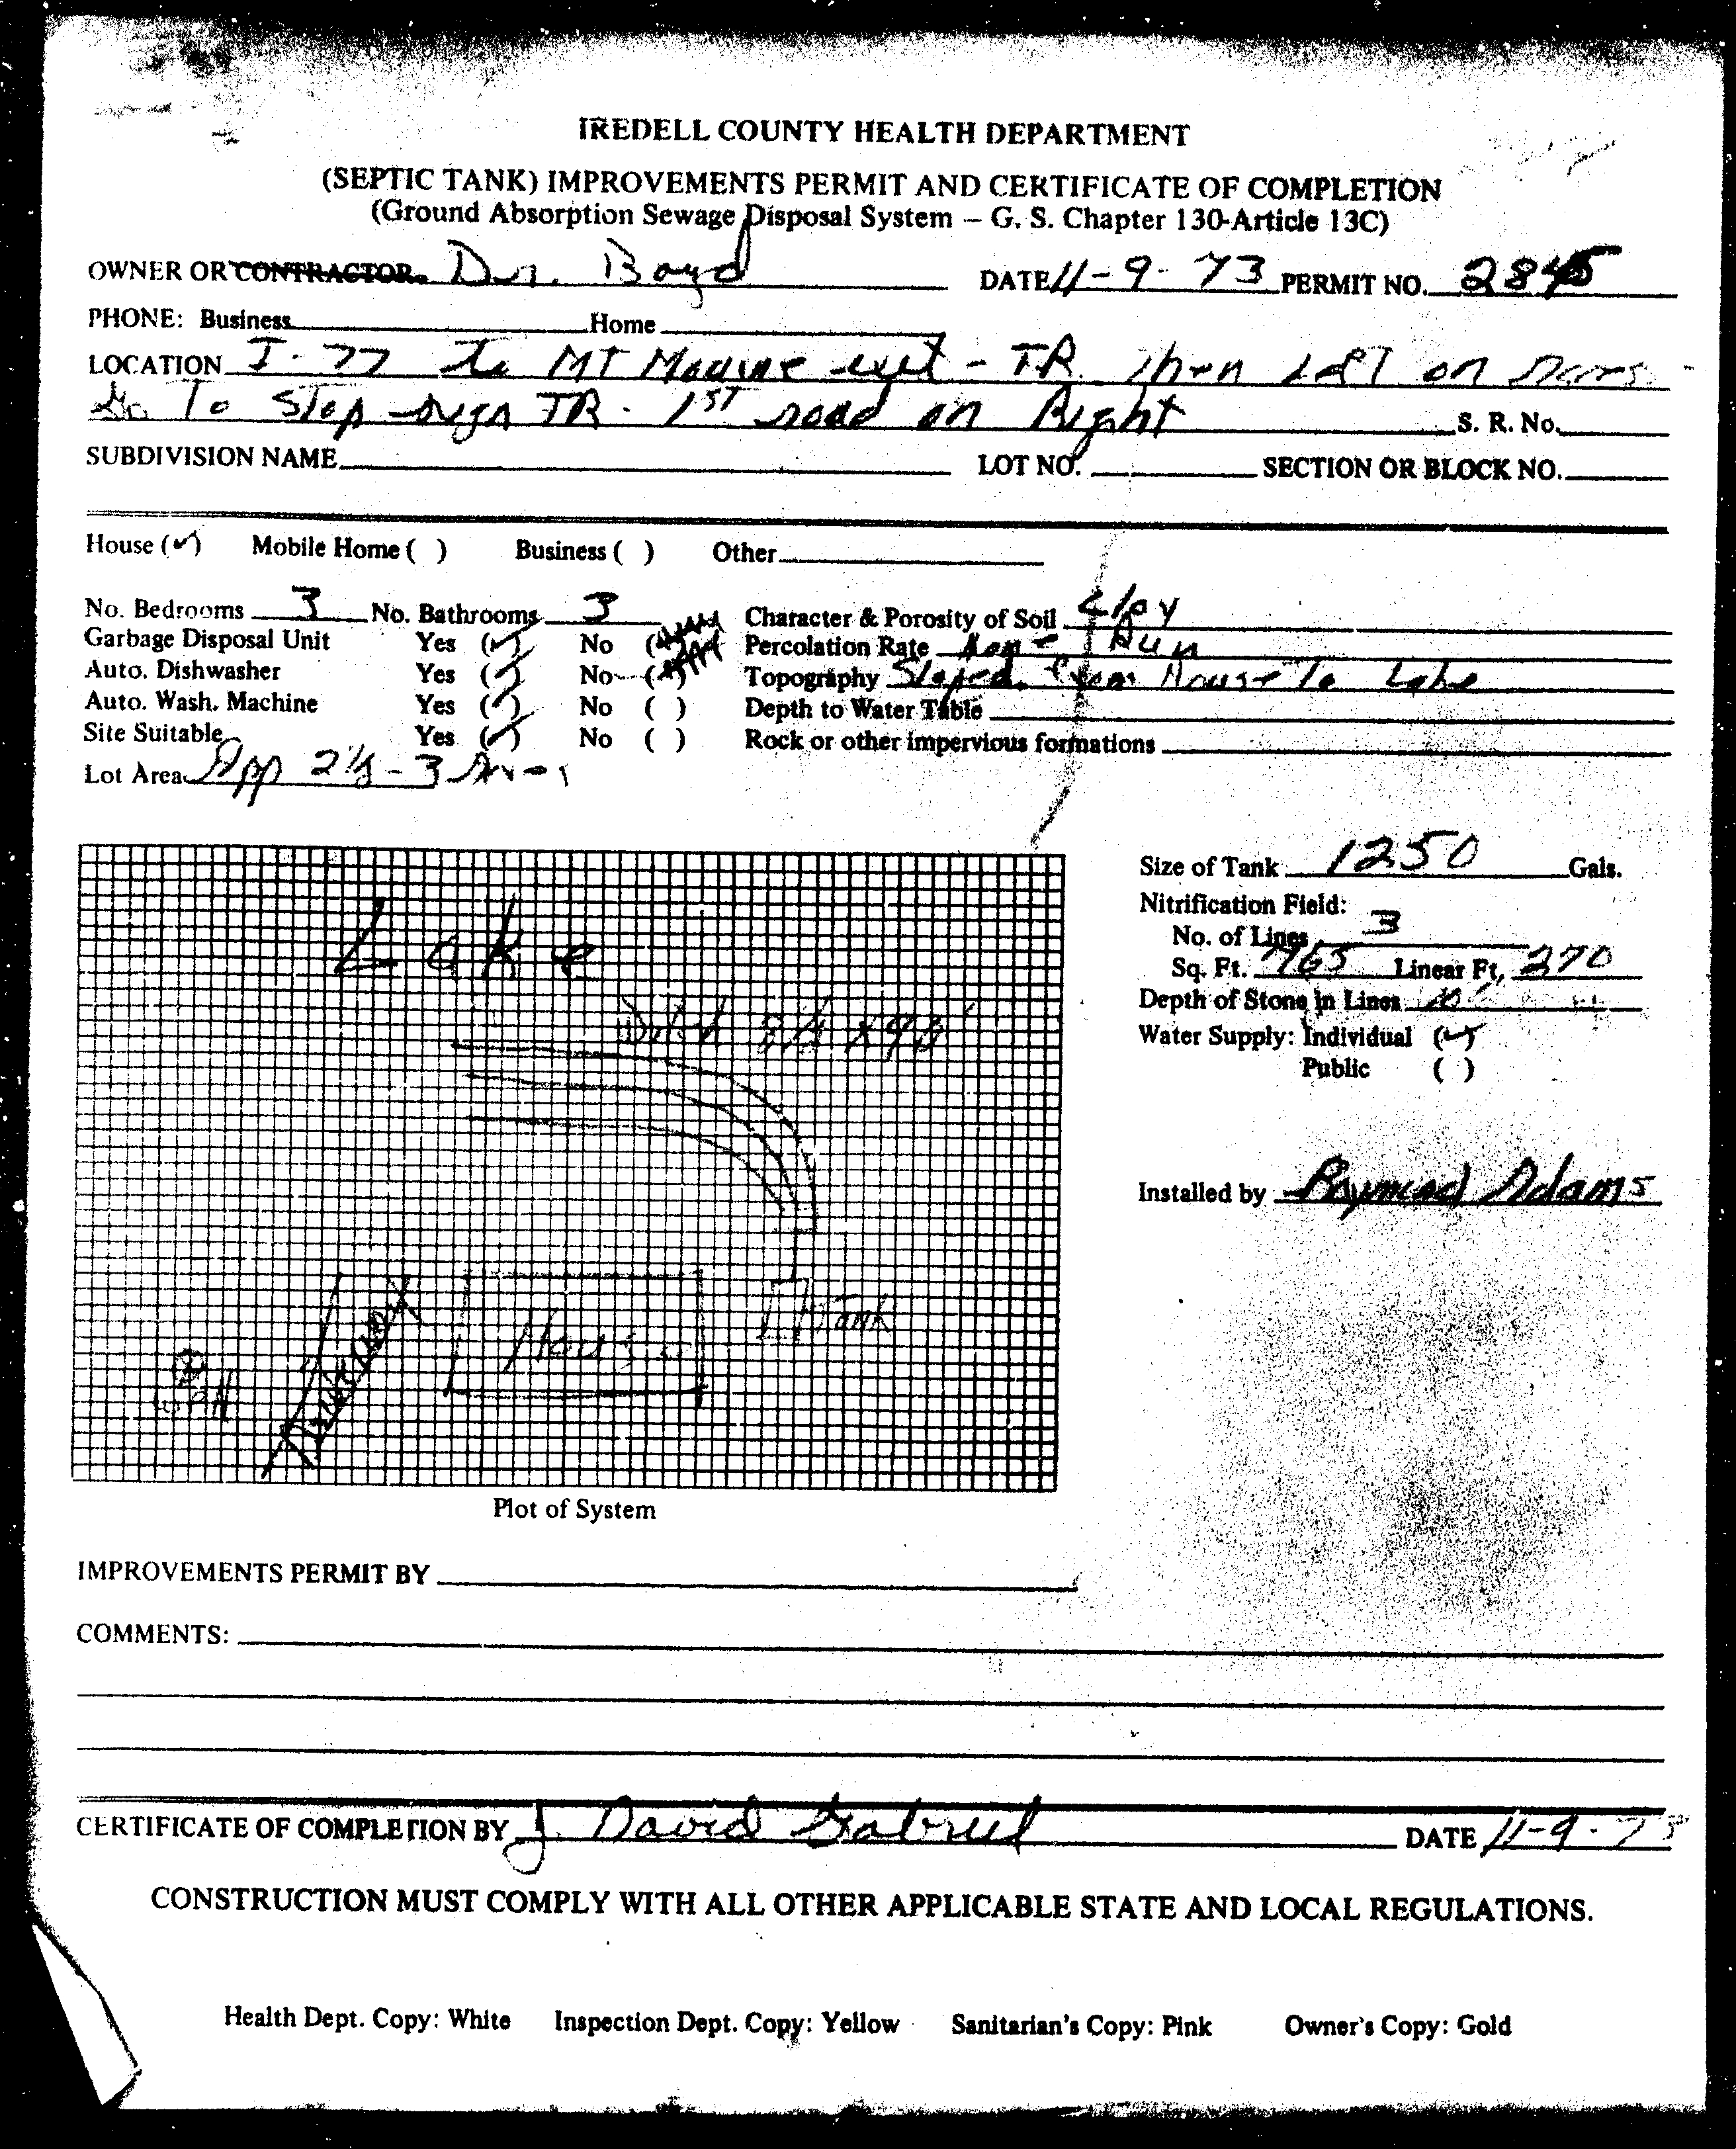 IREDELL COUNTY HEALTH DEPARTMENT
(SEPTIC TANK) IMPROVEMENTS PERMIT AND CERTIFICATE OF COMPLETION
(Ground Absorption Sewage Disposal System – G. S. Chapter 130-Article 13C)
OWNER OR CONTRACTOR Dr. Boyd DATE 11-9-73 PERMIT NO. 2845
PHONE: Business Home
LOCATION I-77 to MT Mourne exit - TR. then Left on
To Stop sign TR. 1ST road on Right S. R. No.
SUBDIVISION NAME LOT NO. SECTION OR BLOCK NO.
House (✓) Mobile Home ( ) Business ( ) Other
No. Bedrooms 3 No. Bathrooms 3 Character & Porosity of Soil Clay
Garbage Disposal Unit Yes (✓) No ( ) Percolation Rate None Run
Auto. Dishwasher Yes (✓) No ( ) Topography Sloped from House to Lake
Auto. Wash. Machine Yes (✓) No ( ) Depth to Water Table
Site Suitable Yes (✓) No ( ) Rock or other impervious formations
Lot Area App 2½ - 3
Size of Tank 1250 Gals.
Nitrification Field:
No. of Lines 3
Sq. Ft. 765 Linear Ft. 270
Depth of Stone in Lines
Water Supply: Individual (✓)
Public ( )
Lake
Ditch x 90'
Installed by Raymond Adams
Tank
House
Driveway
Well
Plot of System
IMPROVEMENTS PERMIT BY
COMMENTS:
CERTIFICATE OF COMPLETION BY J. David Gabriel DATE 11-9-73
CONSTRUCTION MUST COMPLY WITH ALL OTHER APPLICABLE STATE AND LOCAL REGULATIONS.
Health Dept. Copy: White Inspection Dept. Copy: Yellow Sanitarian's Copy: Pink Owner's Copy: Gold